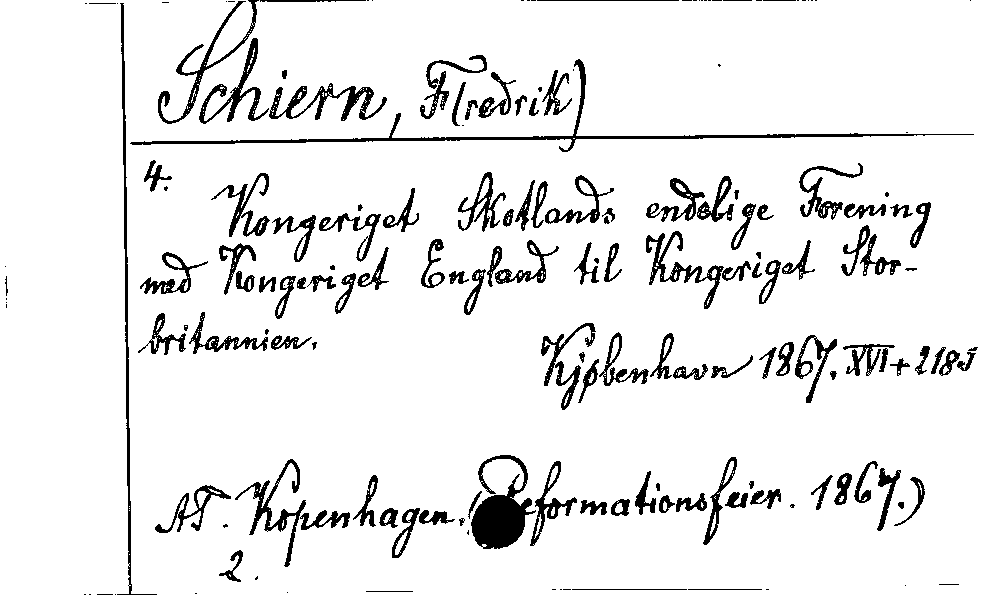 Schiern, F(redrik)
4.
Kongeriget Skotlands endelige Forening
med Kongeriget England til Kongeriget Stor-
britannien.
Kjøbenhavn 1867. XVI + 218 S
AT. Kopenhagen. (Reformationsfeier. 1867.)
2.